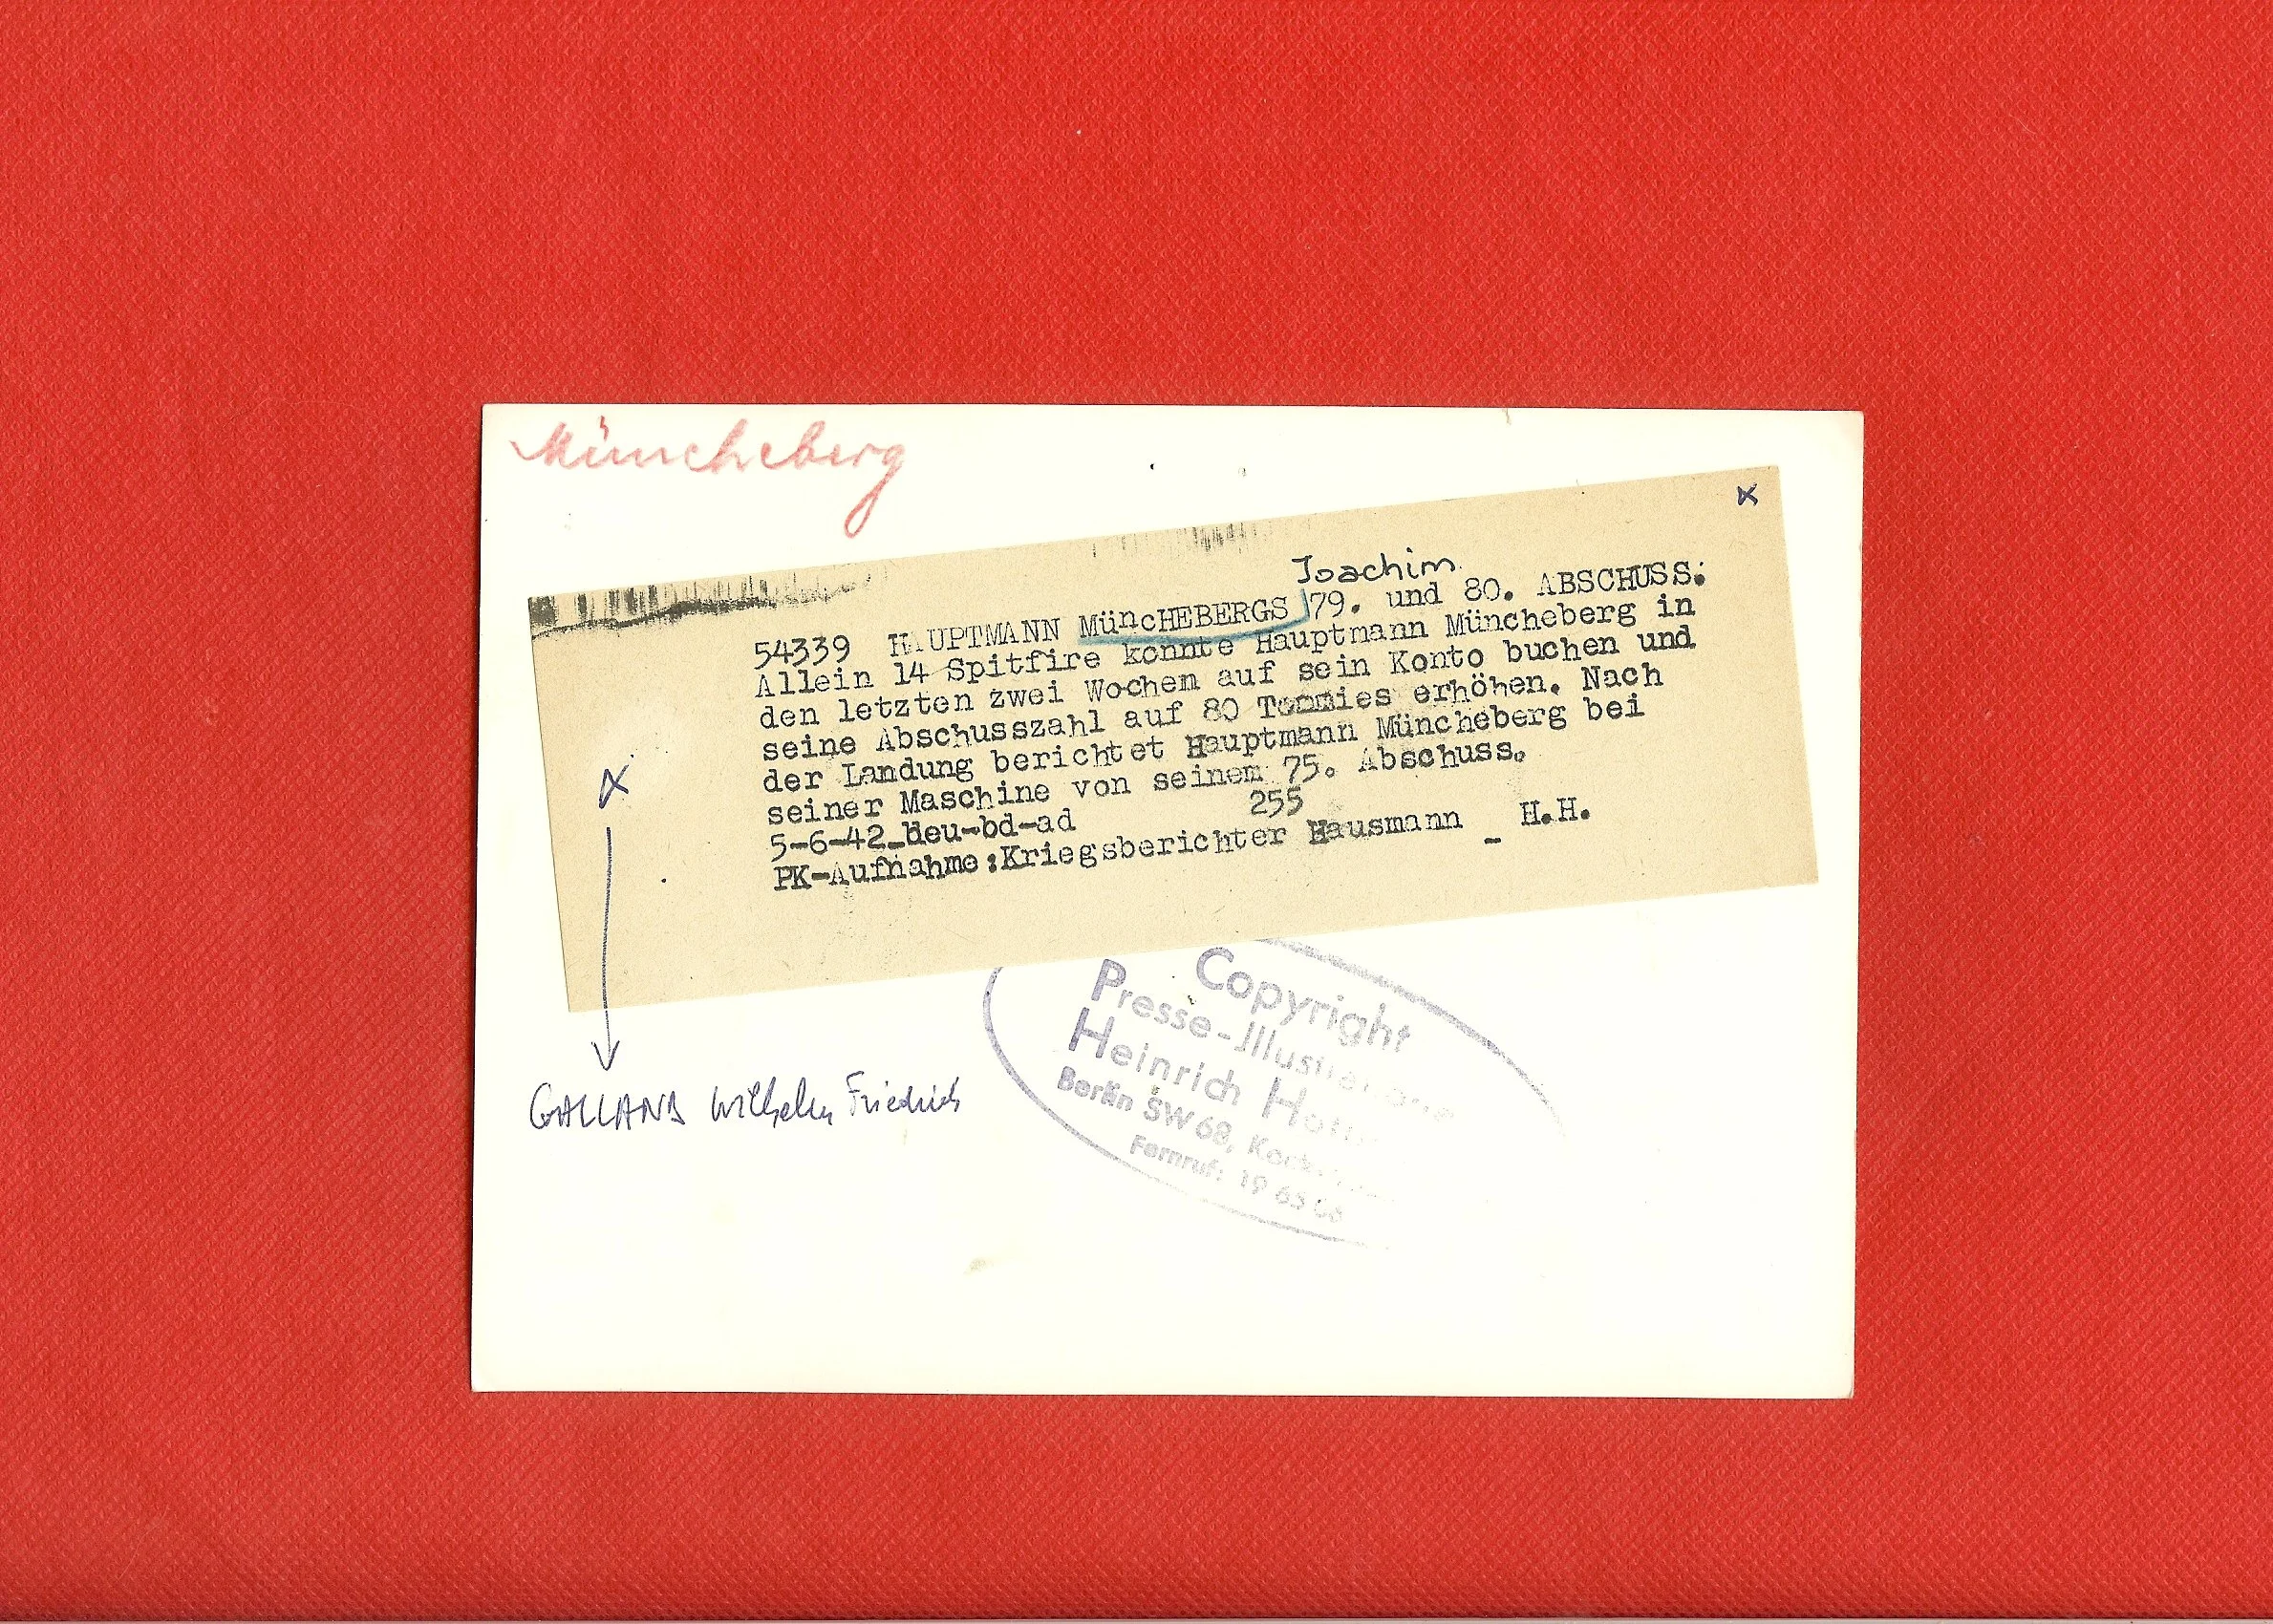 Müncheberg
x
Joachim
54339 HAUPTMANN MünCHEBERGS 79. und 80. ABSCHUSS:
Allein 14 Spitfire konnte Hauptmann Müncheberg in
den letzten zwei Wochen auf sein Konto buchen und
seine Abschusszahl auf 80 Tommies erhöhen. Nach
der Landung berichtet Hauptmann Müncheberg bei
seiner Maschine von seinem 75. Abschuss.
5-6-42_deu-bd-ad 255
PK-Aufnahme:Kriegsberichter Hausmann _ H.H.
x
GALLAND Wilhelm Friedrich
Copyright
Presse-Illustrationen
Heinrich
Berlin SW 68,
Fernruf: 19